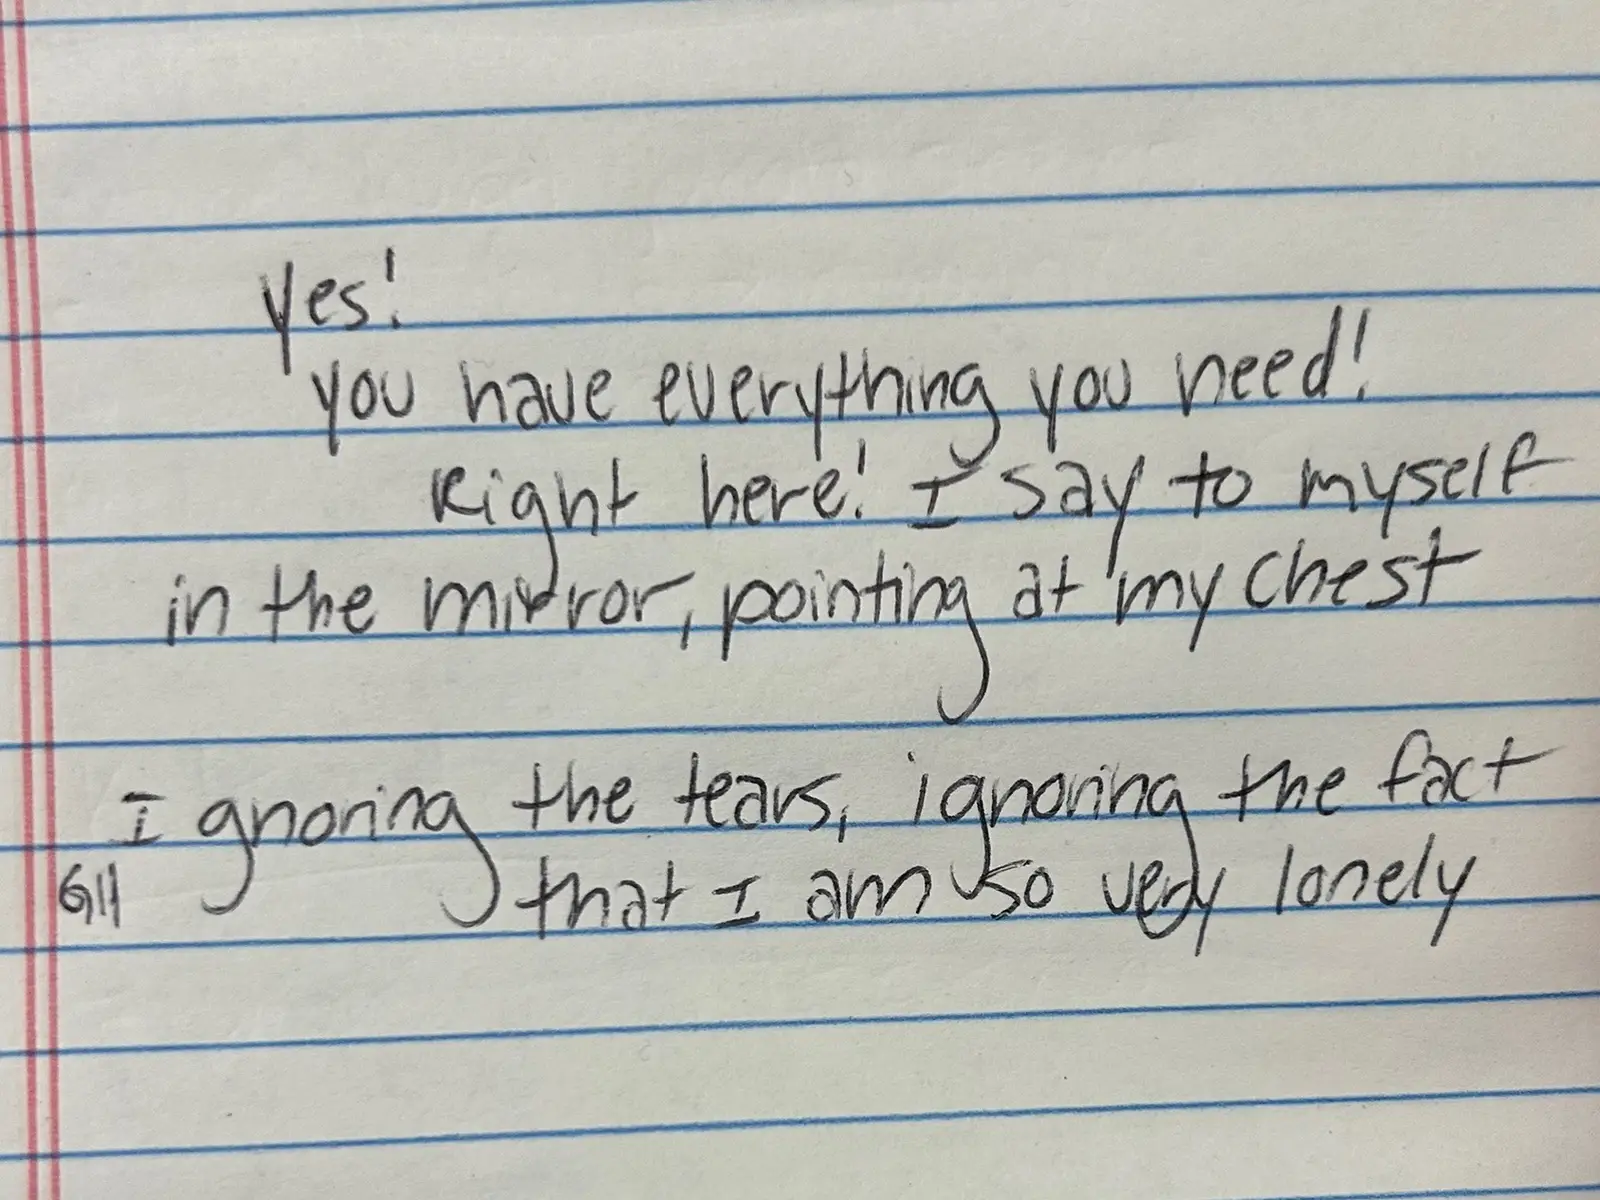 Yes!
you have everything you need!
Right here! I say to myself
in the mirror, pointing at my chest
Ignoring the tears, ignoring the fact
that I am so very lonely